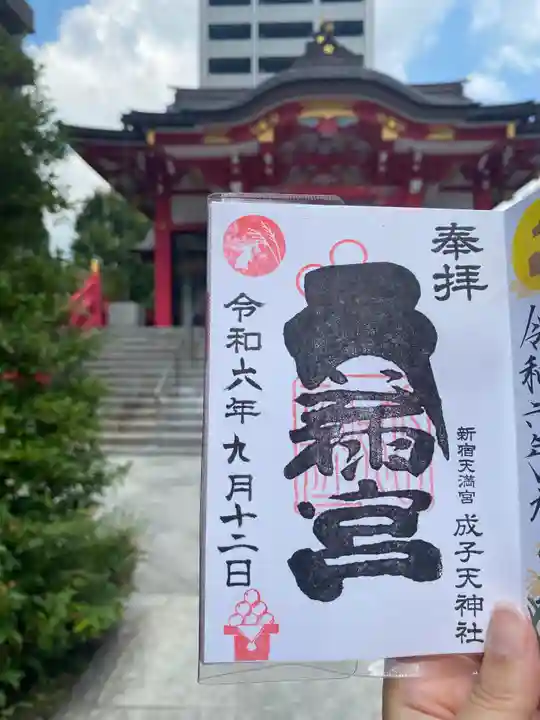 奉拝
天満宮
新宿天満宮 成子天神社
令和六年九月十二日
令和六年